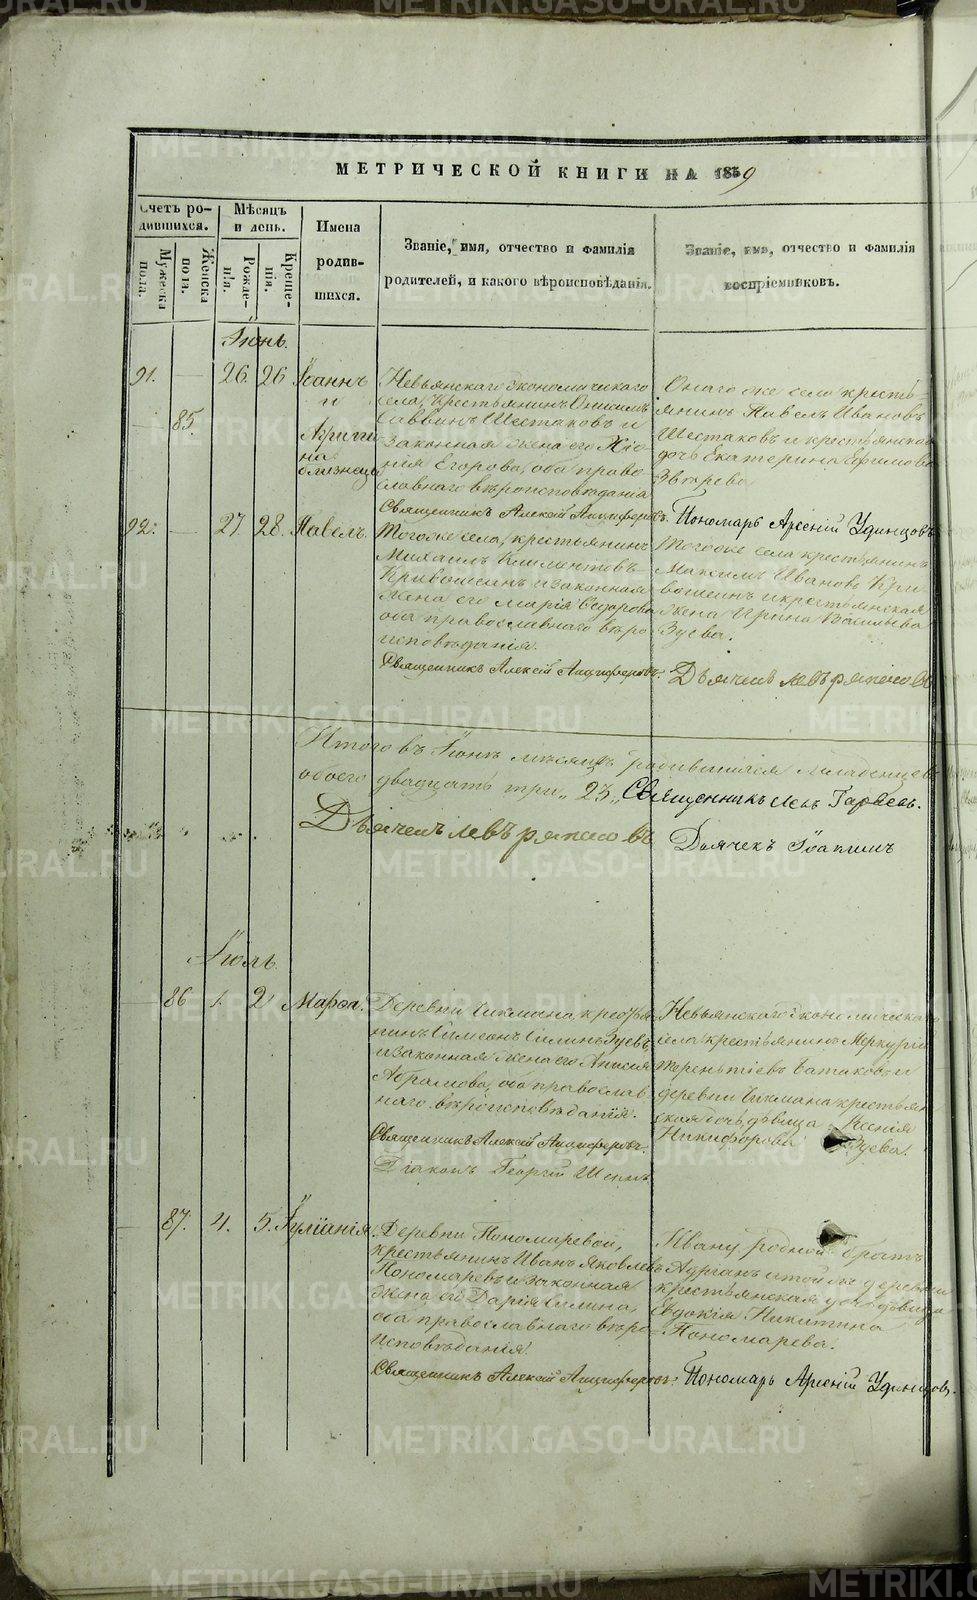 МЕТРИЧЕСКОЙ КНИГИ НА 1859
Счетъ родившихся.
Мѣсяцъ и день.
Имена родившихся.
Званіе, имя, отчество и фамилія родителей, и какого вѣроисповѣданія.
Званіе, имя, отчество и фамилія воспріемниковъ.
Мужеска пола.
Женска пола.
Рожденія.
Крещенія.
Іюнь.
91. — 26. 26 Іоаннъ
и
85.
близнецы
Невьянскаго экономическаго
села, крестьянинъ
Саввинъ Шестаковъ и
законная жена его
Егорова, оба право
славнаго вѣроисповѣданія
Священникъ Алексій Анциферовъ.
Онаго же села кресть-
янинъ Павелъ Ивановъ
Шестаковъ и крестьянская
дочь Екатерина Ефимова
Звѣрева
Пономарь Арсеній Удинцовъ
92. — 27. 28. Павелъ.
Тогоже села, крестьянинъ
Михаилъ Климентовъ
Кривошеинъ и законная
жена его Марія Ѳедорова
оба православнаго вѣро
исповѣданія.
Священникъ Алексій Анциферовъ.
Тогоже села крестьянинъ
Максимъ Ивановъ Кри
вошеинъ и крестьянская
жена Ирина Васильева
Зуева.
Дьячекъ Левъ
Итого въ Іюнѣ мѣсяцѣ родившихся младенцевъ
обоего двадцать три „ 23 „ Священникъ
Дьячекъ Левъ
Дьячекъ Іоакимъ
Іюль.
86 1. 2. Марѳа.
Деревни Чикмана, крестья
нинъ Симеонъ Силинъ Зуевъ,
и законная жена его Анисія
Абрамова, оба православ
наго вѣроисповѣданія.
Священникъ Алексій Анциферовъ.
Діаконъ Георгій
Невьянскаго экономическаго
села крестьянинъ Меркурій
Терентіевъ Батаковъ и
деревни Чикмана крестьян
ская дочь, дѣвица Ксенія
Никифорова Зуева.
87. 4. 5. Іуліанія.
Деревни Пономаревой,
крестьянинъ Иванъ Яковлевъ
Пономаревъ и законная
жена его Дарія Силина,
оба православнаго вѣро-
исповѣданія.
Священникъ Алексій Анциферовъ.
Ивану родной братъ
и той же деревни
крестьянская дочь дѣвица
Евдокія Никитина
Пономарева.
Пономарь Арсеній Удинцовъ.
METRIKI.GASO-URAL.RU